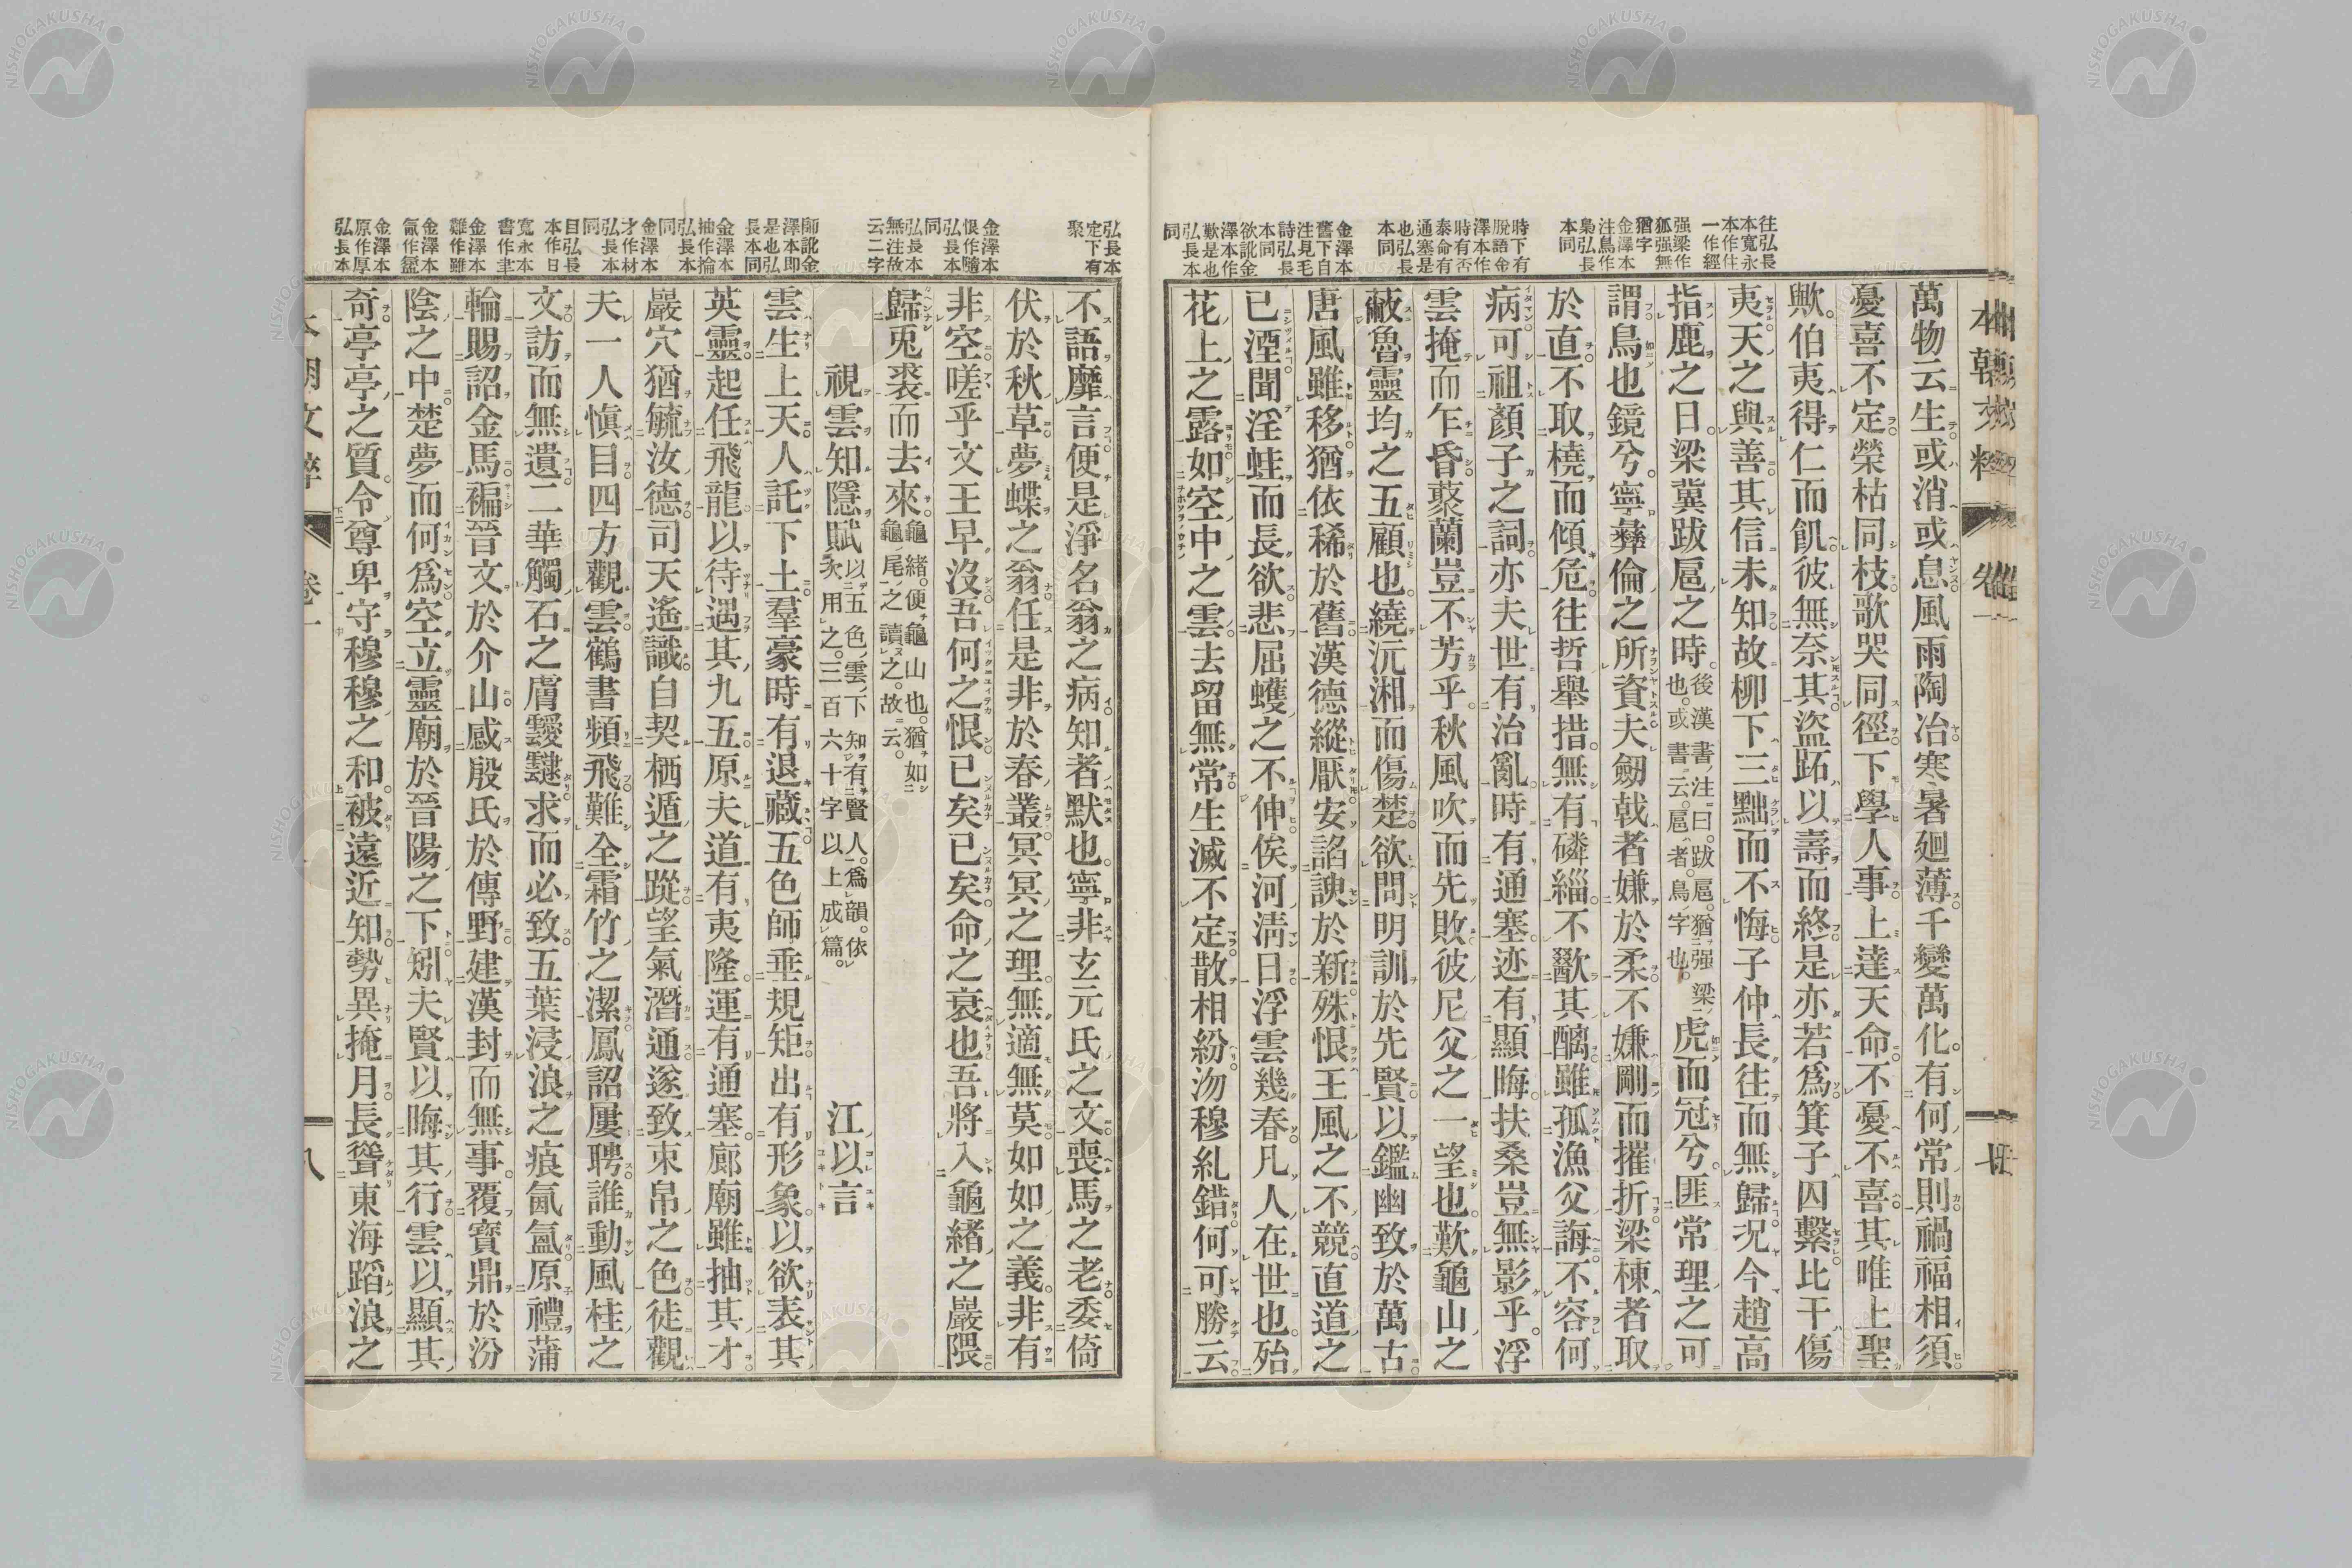 往弘長
本寬永
本作住
一作經
强梁作
狐强無
猶字
金澤本
注鳥作
梟弘長
本同
時下有
脫語金
澤本作
時有否
泰命有
通塞是
也弘長
本同
金澤本
舊下自
注見毛
詩弘長
本同
欲訛金
澤本作
歎是也
弘長本
同
萬物云生或消或息風雨陶冶寒暑廻薄千變萬化有何常則禍福相須
憂喜不定榮枯同枝歌哭同徑下學人事上達天命不憂不喜其唯上聖
歟伯夷得仁而飢彼無奈其盜跖以壽而終是亦若爲箕子囚繫比干傷
夷天之與善其信未知故柳下三黜而不悔子仲長往而無歸況今趙高
指鹿之日梁冀跋扈之時後漢書注曰跋扈猶强梁也或書云扈者鳥字也虎而冠兮匪常理之可
謂鳥也鏡兮寧彝倫之所資夫劒戟者嫌於柔不嫌剛而摧折梁棟者取
於直不取橈而傾危往哲舉措無有磷緇不歠其醨雖孤漁父誨不容何
病可祖顏子之詞亦夫世有治亂時有通塞迹有顯晦扶桑豈無影乎浮
雲掩而乍昏䕺蘭豈不芳乎秋風吹而先敗彼尼父之一望也歎龜山之
蔽魯靈均之五顧也繞沅湘而傷楚欲問明訓於先賢以鑑幽致於萬古
唐風雖移猶依稀於舊漢德縱厭安諂諛於新殊恨王風之不競直道之
已湮聞淫蛙而長欲悲屈蠖之不伸俟河淸日浮雲幾春凡人在世也殆
花上之露如空中之雲去留無常生滅不定散相紛沕穆糺錯何可勝云
弘長本
定下有
聚
金澤本
恨作隨
弘長本
同
弘長本
無注故
云二字
師訛金
澤本卽
是也弘
長本同
金澤本
抽作掄
弘長本
同
金澤本
才作材
弘長本
同
目弘長
本作日
寬永本
書作聿
金澤本
難作雖
金澤本
氤作䀀
金澤本
原作厚
弘長本
不語靡言便是淨名翁之病知者默也寧非玄元氏之文喪馬之老委倚
伏於秋草夢蝶之翁任是非於春叢冥冥之理無適無莫如如之義非有
非空嗟乎文王早沒吾何之恨已矣已矣命之衰也吾將入龜緖之巖隈
歸兎裘而去來龜緖便龜山也猶如龜尾之讀之故云
視雲知隱賦以五色雲下知有賢人爲韻依次用之三百六十字以上成篇 江以言
雲生上天人託下土羣豪時有退藏五色師垂規矩出有形象以欲表其
英靈起任飛龍以待遇其九五原夫道有夷隆運有通塞廊廟雖抽其才
巖穴猶毓汝德司天遙識自契栖遁之蹤望氣潛通遂致束帛之色徒觀
夫一人愼目四方觀雲鶴書頻飛難全霜竹之潔鳳詔屢聘誰動風桂之
文訪而無遺二華觸石之膚靉靆求而必致五葉浸浪之痕氤氳原禮蒲
輪賜詔金馬褊晉文於介山感殷氏於傅野建漢封而無事覆寶鼎於汾
陰之中楚夢而何爲空立靈廟於晉陽之下矧夫賢以晦其行雲以顯其
奇亭亭之質令尊卑守穆穆之和被遠近知勢異掩月長聳東海蹈浪之